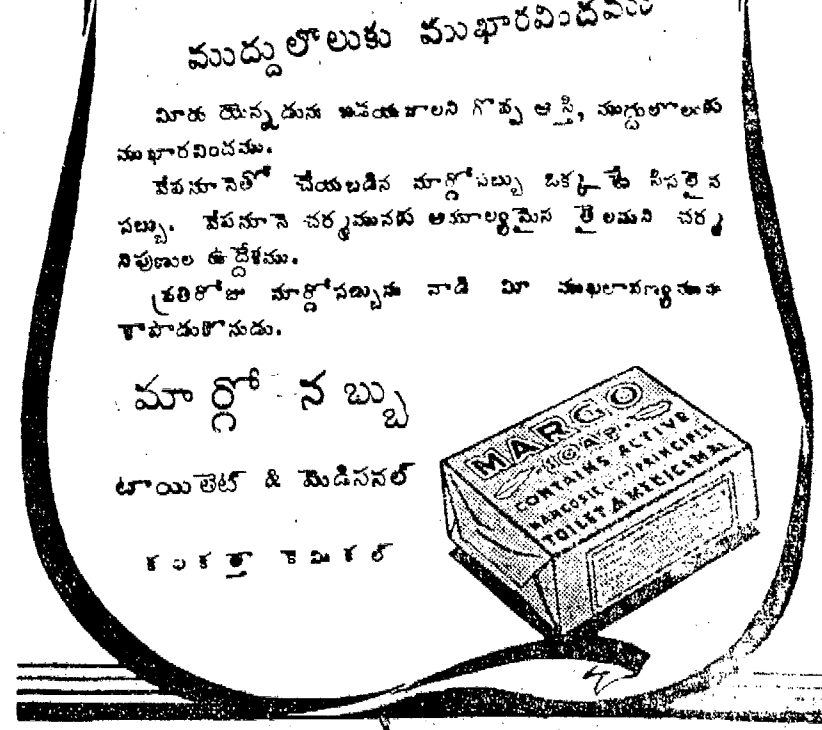 ముద్దులొలుకు ముఖారవిందము
మీరు యెన్నడును విడయజాలని గొప్ప ఆస్తి, ముద్దులొలుకు
ముఖారవిందము.
వేపనూనెతో చేయబడిన మార్గోసబ్బు ఒక్కటే సిసలైన
సబ్బు. వేపనూనె చర్మమునకు అమూల్యమైన తైలమని చర్మ
నిపుణుల ఉద్దేశము.
ప్రతిరోజు మార్గోసబ్బును వాడి మీ ముఖలావణ్యమును
కాపాడుకొనుడు.
మార్గో సబ్బు
టాయిలెట్ & మెడిసినల్
కలకత్తా కెమికల్
MARGO
SOAP
CONTAINS ACTIVE
MARGOSIC PRINCIPLE
TOILET & MEDICINAL